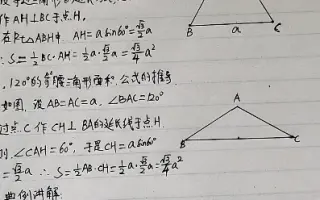 作AH⊥BC于点H.
在Rt△ABH中, AH=a sin60°=√3/2 a
∴S=1/2 BC·AH=1/2 a·√3/2 a=√3/4 a²
120°的等腰三角形面积公式的推导
如图, 设AB=AC=a, ∠BAC=120°
过点C作CH⊥BA的延长线于点H
则∠CAH=60°, 于是CH=a sin60°
=√3/2 a ∴S=1/2 AB·CH=1/2 a·√3/2 a=√3/4 a²
典例讲解
B a C
A
B C